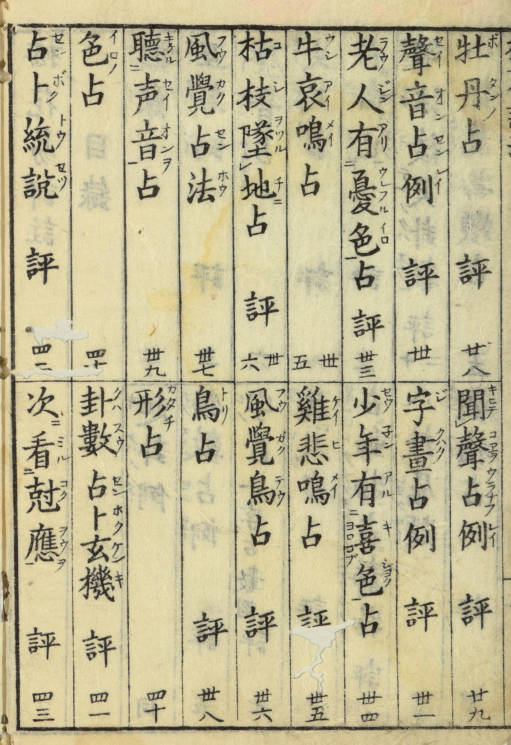 牡丹占 評 廿八
聞聲占例 評 廿九
聲音占例 評 卅
字畫占例 評 卅一
老人有憂色占 評 卅三
少年有喜色占 評 卅四
牛哀鳴占 卅五
雞悲鳴占 評 卅五
枯枝墜地占 評 卅六
風覺鳥占 評 卅六
風覺占法 卅七
鳥占 評 卅八
聽声音占 卅九
形占 四十
色占 四十
卦數 占卜玄機 評 四一
占卜統説 評 四二
次看尅應 評 四三